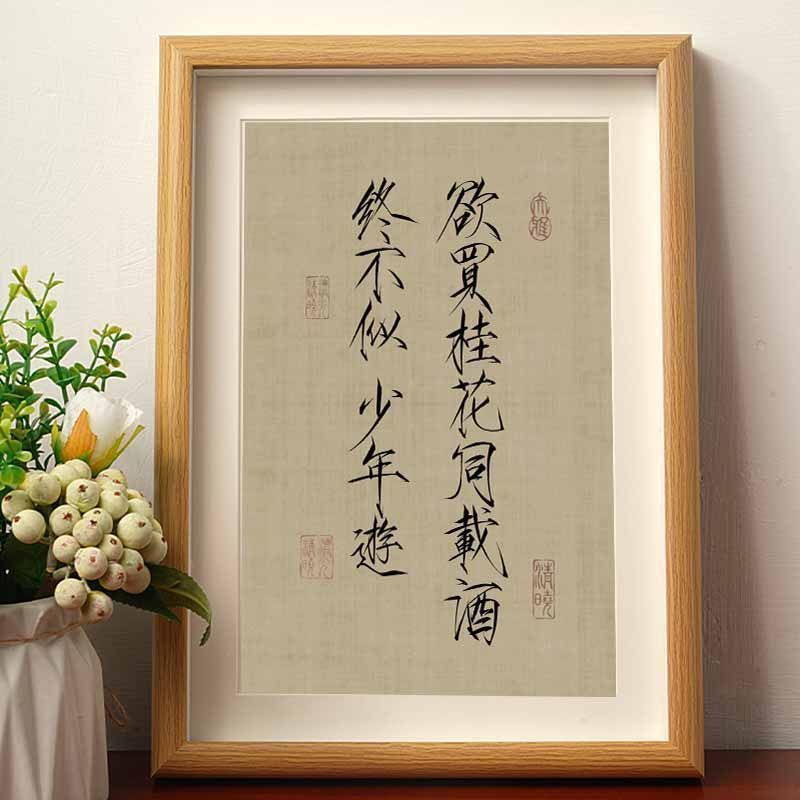 欲買桂花同載酒
終不似少年遊
清曉